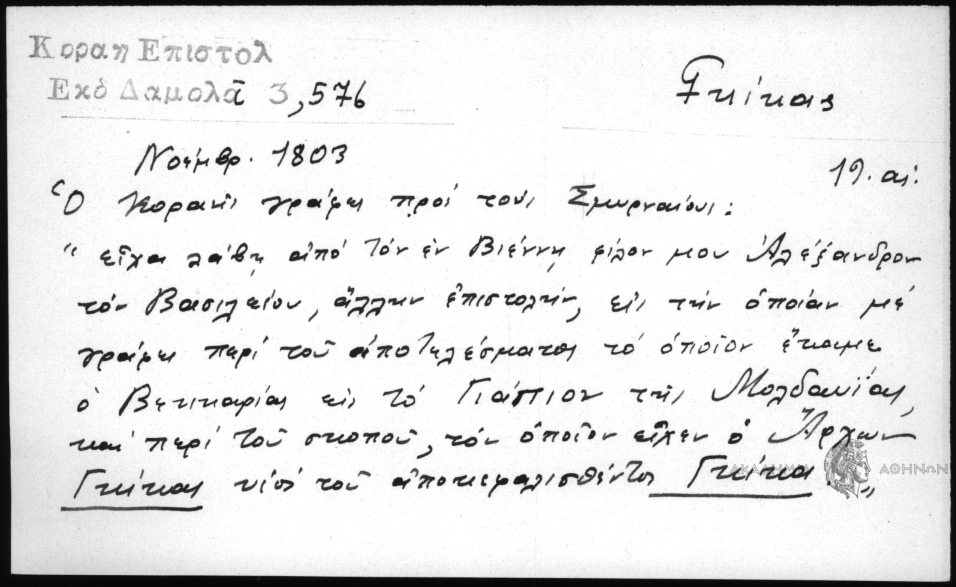 Κοραη Επιστολ
Εκδ Δαμολᾶ 3,576
Γκίκας
Νοέμβρ. 1803
19. αἰ.
Ὁ Κοραῆς γράφει πρὸς τοὺς Σμυρναίους:
"εἶχα λάβῃ ἀπό τόν ἐν Βιέννῃ φίλον μου Ἀλέξανδρον
τόν Βασιλείου, ἄλλην ἐπιστολήν, εἰς τήν ὁποίαν μέ
γράφει περί τοῦ ἀποτελέσματος τό ὁποῖον ἔκαμε
ὁ Βεκκαρίας εἰς τό Γιάσιον τῆς Μολδαυΐας,
καί περί τοῦ σκοποῦ, τόν ὁποῖον εἶχεν ὁ Ἄρχων
Γκίκας υἱός τοῦ ἀποκεφαλισθέντος Γκίκα."
ΑΚΑΔΗΜΙΑ ΑΘΗΝΩΝ